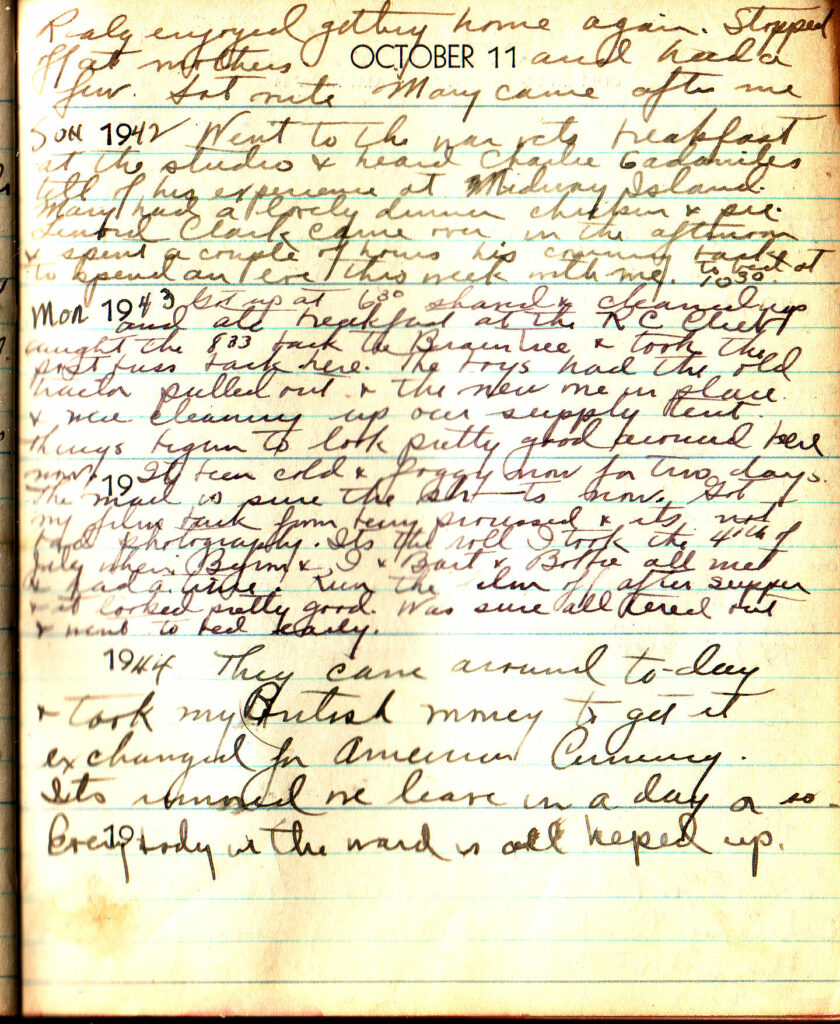 Realy enjoyed getting home again. Stopped
off at mothers OCTOBER 11 and had a
few. Sat nite Mary came after me
SUN 1942 Went to the war vets breakfast
at the studio & heard Charlie
tell of his experience at Midway Island.
Mary had a lovely dinner chicken & pie.
Clark came over in the afternoon
& spent a couple of hours his coming back
to spend an eve this week with me. to bed at 10 30.
Mon 1943 Got up at 6 30 shaved & cleaned up
and ate breakfast at the R C Club
caught the 8 33 back to Braintree & took the
post buss back here. The boys had the old
tractor pulled out & the new one in place
& were cleaning up our supply tent.
Things begun to look pretty good around here
now. Its been cold & foggy now for two days.
19
The mail is sure the now. Got
my film back from being processed & its not
bad photography. Its the roll I took the 4th of
July when Byron & I & Bart & Bobbie all met
& had a time. Run the film off after supper
& it looked pretty good. Was sure all tered out
& went to bed early.
1944 They came around to-day
& took my British money to get it
exchanged for American Currency.
Its rumored we leave in a day or so.
19
Everybody in the ward is all heped up.